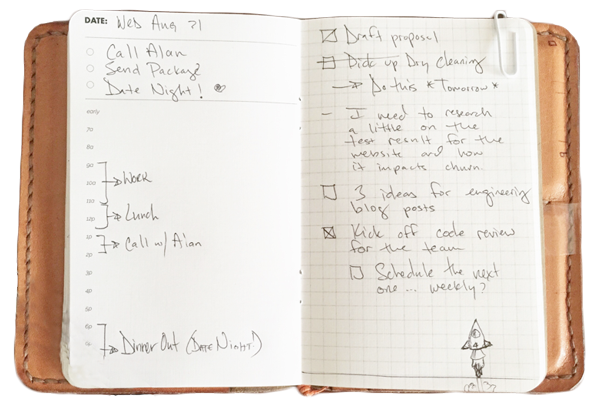 DATE: Wed Aug 21
Call Alan
Send Package
Date Night!
early
70
80
90
100
110
120
10
20
60
Work
Lunch
Call w/ Alan
Dinner Out (Date Night!)
Draft proposal
Pick up Dry Cleaning
Do this *Tomorrow*
- I need to research
a little on the
test result for the
website and how
it impacts churn.
3 ideas for engineering
blog posts
Kick off code review
for the team
Schedule the next
one... weekly?